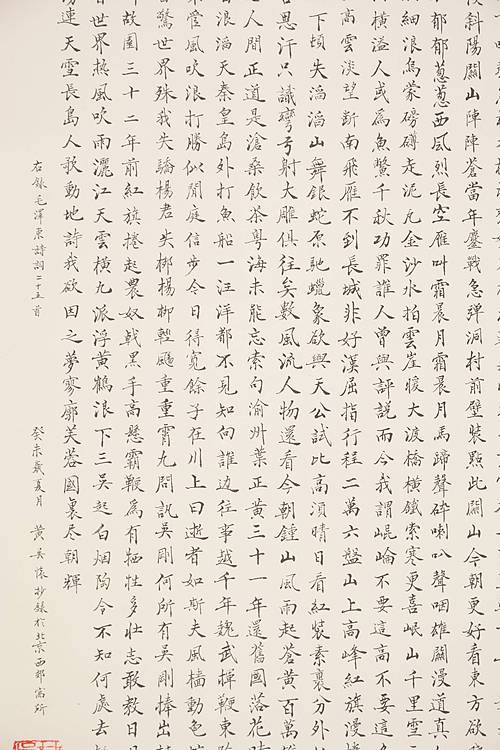 斜陽關山陣陣蒼當年鏖戰急彈洞村前壁裝點關山今朝更看東方欲
郁郁蔥蔥西風烈長空雁叫霜晨月霜晨月馬蹄聲碎喇叭聲咽雄關漫道真
細浪烏蒙磅礴走泥凡金沙水拍雲崖暖大渡橋橫鐵索寒更喜岷山千里雪
橫溢人或為魚鱉千秋功罪誰人曾與評說而今我謂崐崘不要這高不要這
高雲淡望斷南飛雁不到長城非好漢屈指行程二萬六盤山上高峰紅旗漫
下頓失滔滔山舞銀蛇原馳蠟象欲與天公試比高須晴日看紅裝素裹分外
思汗只識彎弓射大雕俱往矣數風流人物還看今朝鍾山風雨起蒼黃百萬
人間正道是滄桑飲茶粵海未能忘索句渝州葉正黃三十一年還舊國落花時
浪滔天秦皇島外打魚船一汪洋都不見知向誰邊往事越千年魏武揮鞭東
管風吹浪打勝似閒庭信步今日得寬餘子在川上曰逝者如斯夫風檣動龜
驚世界殊我失驕楊君失柳楊柳輕颺重重霄九問訊吳剛何所有吳剛捧出
故園三十二年前紅旗捲起農奴戟黑手高懸霸鞭為有犧牲多壯志敢教日月
世界熱風吹雨灑江天雲橫九派浮黃鶴浪下三吳起白烟陶令不知何處去
連天雪長島人歌動地詩我欲因之夢寥廓芙蓉國裏尽朝輝
右錄毛澤東詩詞二十五首
癸未歲夏月 黃 懷抄錄於北京西郊寓所